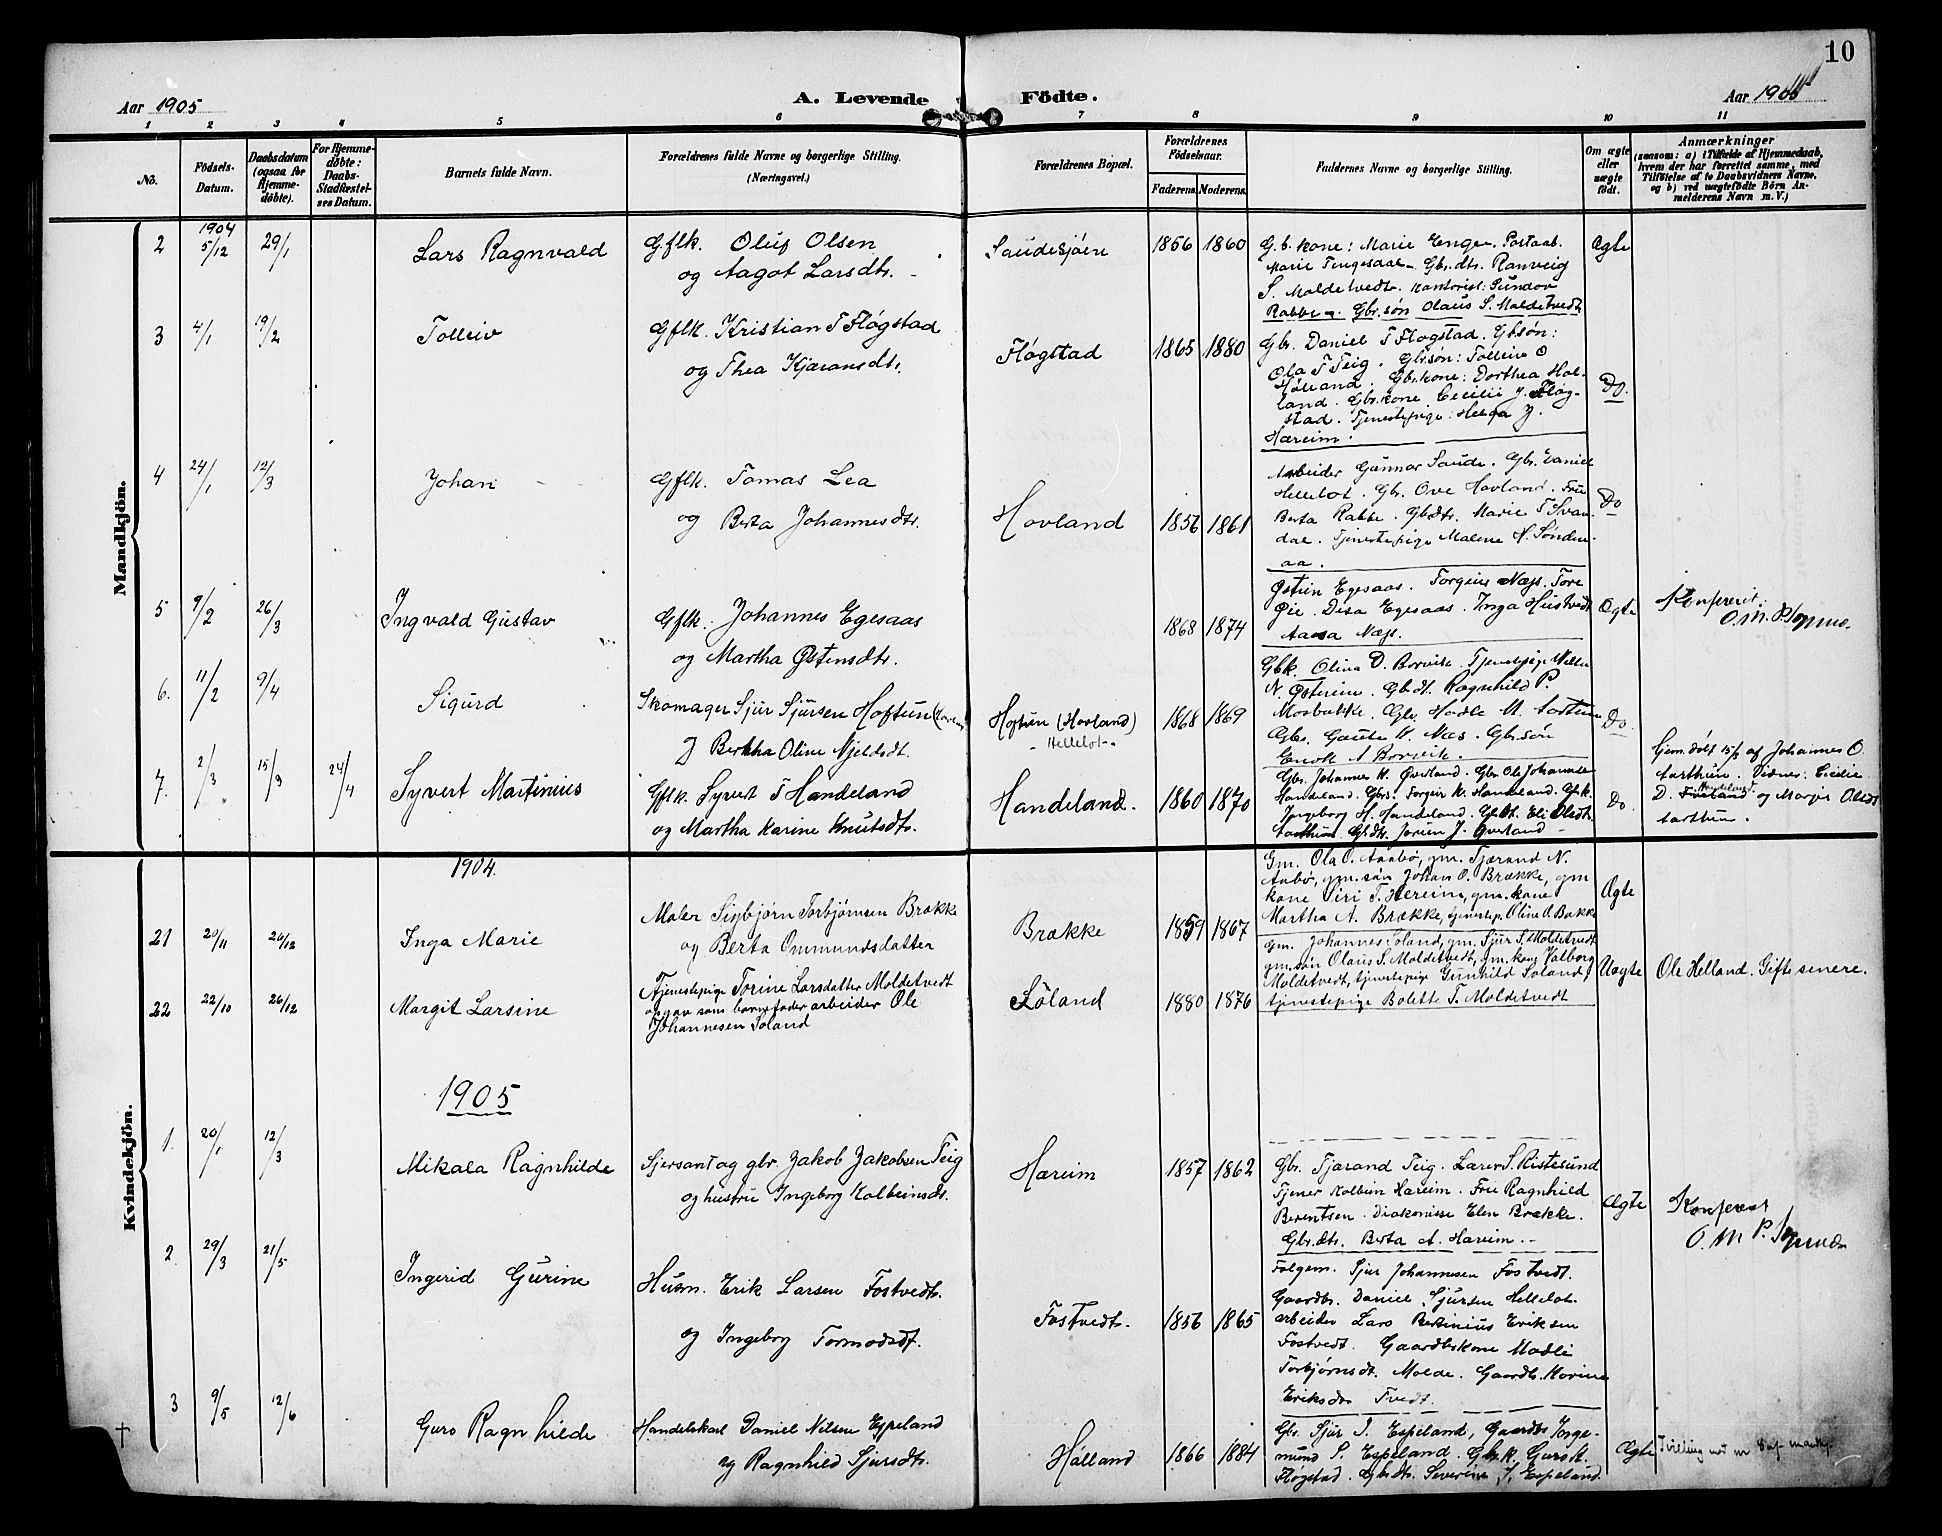 10
Aar 1905
A. Levende Födte.
Aar 1905
1 2 3 4 5 6 7 8 9 10 11
No.
Födsels-Datum.
Daabsdatum (ogsaa for Hjemmedöbte).
For Hjemmedöbte: Daabs-Stadfæstelses Datum.
Barnets fulde Navn.
Forældrenes fulde Navne og borgerlige Stilling.
(Næringsvei.)
Forældrenes Bopæl.
Forældrenes Födselsaar.
Faderens. Moderens.
Faddernes Navne og borgerlige Stilling.
Om ægte eller uægte födt.
Anmærkninger
(saasom: a) i Tilfælde af Hjemmedaab,
hvem der har forrettet samme, med
Tilföielse af to Daabsvidners Navne,
og b) ved uægtefödte Börn An-
melderens Navn m. V.)
Mandkjön.
1904
2 5/12 29/1 Lars Ragnvald
Gflk. Oluf Olsen
og Aagot Larsdtr.
Saudesjøen 1856 1860
G.b.kone: Marie Enge. Postaab.
Marie Tengesdal. Gbr.dtr. Ranveig
S. Moldetvedt. Kontorist: Gundov
Rabbe. Gbr.søn Olaus S. Moldetvedt
Ægte
3 4/1 19/2 Tolleiv
Gflk. Kristian T Fløgstad
og Thea Kjæransdtr.
Fløgstad 1865 1880
Gbr. Daniel T Fløgstad. Gbsøn:
Ola T Teig. Gbr.søn: Tolleiv O
Hølland. Gbr.kone: Dorthea Høl-
land. Gbr.kone Cecilii J. Fløg-
stad. Tjenestepige: Helga J.
Hareim.
Do.
4 24/1 12/3 Johan
Gflk. Tomas Lea
og Berta Johannesdtr.
Hovland 1856 1861
Arbeider Gunnar Saude. Gbr. Daniel
Hellelot. Gbr. Ove Hovland. Fru
Berta Rabbe. Gbdtr. Marie T Svan-
dal. Tjenestepige Malene N. Sønden-
aa.
Do
5 9/2 26/3 Ingvald Gustav
Gflk. Johannes Egesaas
og Martha Østensdtr.
1868 1874
Østein Egesaas. Torgeir Næs. Tore
Øie. Disa Egesaas. Inga Hustvedt
Aasa Næs.
Ægte
Konfereret:
O. M. P.
6. 11/2 9/4 Sigurd
Skomager Sjur Sjursen Hoftun
J Bertha Oline Njeldsdt.
Hoftun (Hovland)
Hellelot
1868 1869
Gbk. Olina D. Borvik. Tjenestepige
N. Østerein. Gbdt. Ragnhild P.
Mosbakke. Gbr. Hadle M. Aarthun
Gbr. Gaute K. Næs. Gbr.søn
Enok A Borvik.
Do.
7. 2/3 15/3 24/4 Syvert Martinius
Gflk. Syvert T Handeland
og Martha Karine Knutsdtr.
Handeland. 1860 1870
Gbr. Johannes K. Øverland. Gbr. Ole Johannes
Handeland. Gbrs. Torgeir K. Handeland. Gbk.
Ingeborg H. Handeland. Gbdt. Eli Olsdt.
Aarthun. Gbdtr. Jorun J. Øverland
Do.
Hjem.døbt 15/3 af Johannes O.
Aarthun. Vidner: Cecilie
D. Handeland og Margit Olsdt
Aarthun.
Kvindekjön.
1904.
21 20/11 26/12 Inga Marie
Maler Sigbjørn Torbjørnsen Brække
og Berta Ommundsdatter
Brække 1859 1867
Gm. Ola O. Aabø, gm. Tjærand N.
Aabø, gm. søn Johan O. Brække, gm
kone Siri T. Hereim, gm. kone
Martha A. Brække, tjenestep. Oline O. Bakke
Ægte
22 22/10 26/12 Margit Larsine
Tjenestepige Torine Larsdatter Moldetvedt
opgav som barnefader arbeider Ole
Johannesen Søland
Søland 1880 1876
Gm. Johannes Søland, gm. Sjur S. Moldetvedt
gm. søn Olaus S. Moldetvedt, gm. kone Valborg
Moldetvedt, tjenestepige Gunhild Søland,
tjenestepige Bolette T. Moldetvedt
Uægte
Ole Helland. Gifte senere.
1905
1. 20/1 12/3 Mikala Ragnhilde
Sjersant og gbr. Jakob Jakobsen Teig
og hustru Ingeborg Kolbeinsdtr.
Hareim 1857 1862
Gbr. Tjarand Teig. Lærer S. Ristesund
Tjener Kolbein Hareim. Fru Ragnhild
Berentsen. Diakonisse Elen Brække.
Gbr.dtr. Berta A. Hareim.
Ægte
Konfereret
O. M. P.
2. 29/3 21/5 Ingerid Gurine
Husm. Erik Larsen Fostvedt.
og Ingeborg Tormodsdt.
Fostvedt. 1856 1865
Følgem. Sjur Johannesen Fostvedt.
Gaardbr. Daniel Sjursen Hellelot.
arbeider Lars Bertinius Eriksen
Fostvedt. Gaardbskone Madli
Torbjørnsdt. Molde. Gaardb. Karine
Eriksdtr Tvedt.
3 9/5 12/6 Guro Ragnhilde
Handelskarl Daniel Nilsen Espeland
og Ragnhild Sjursdtr.
Hølland 1866 1884
Gbr. Sjur J. Espeland, Gaardb. Torge-
mund S. Espeland. Gbk. Guro K.
Fløgstad. Gbrdtr. Severine S. Espeland.
Ægte
Tvilling